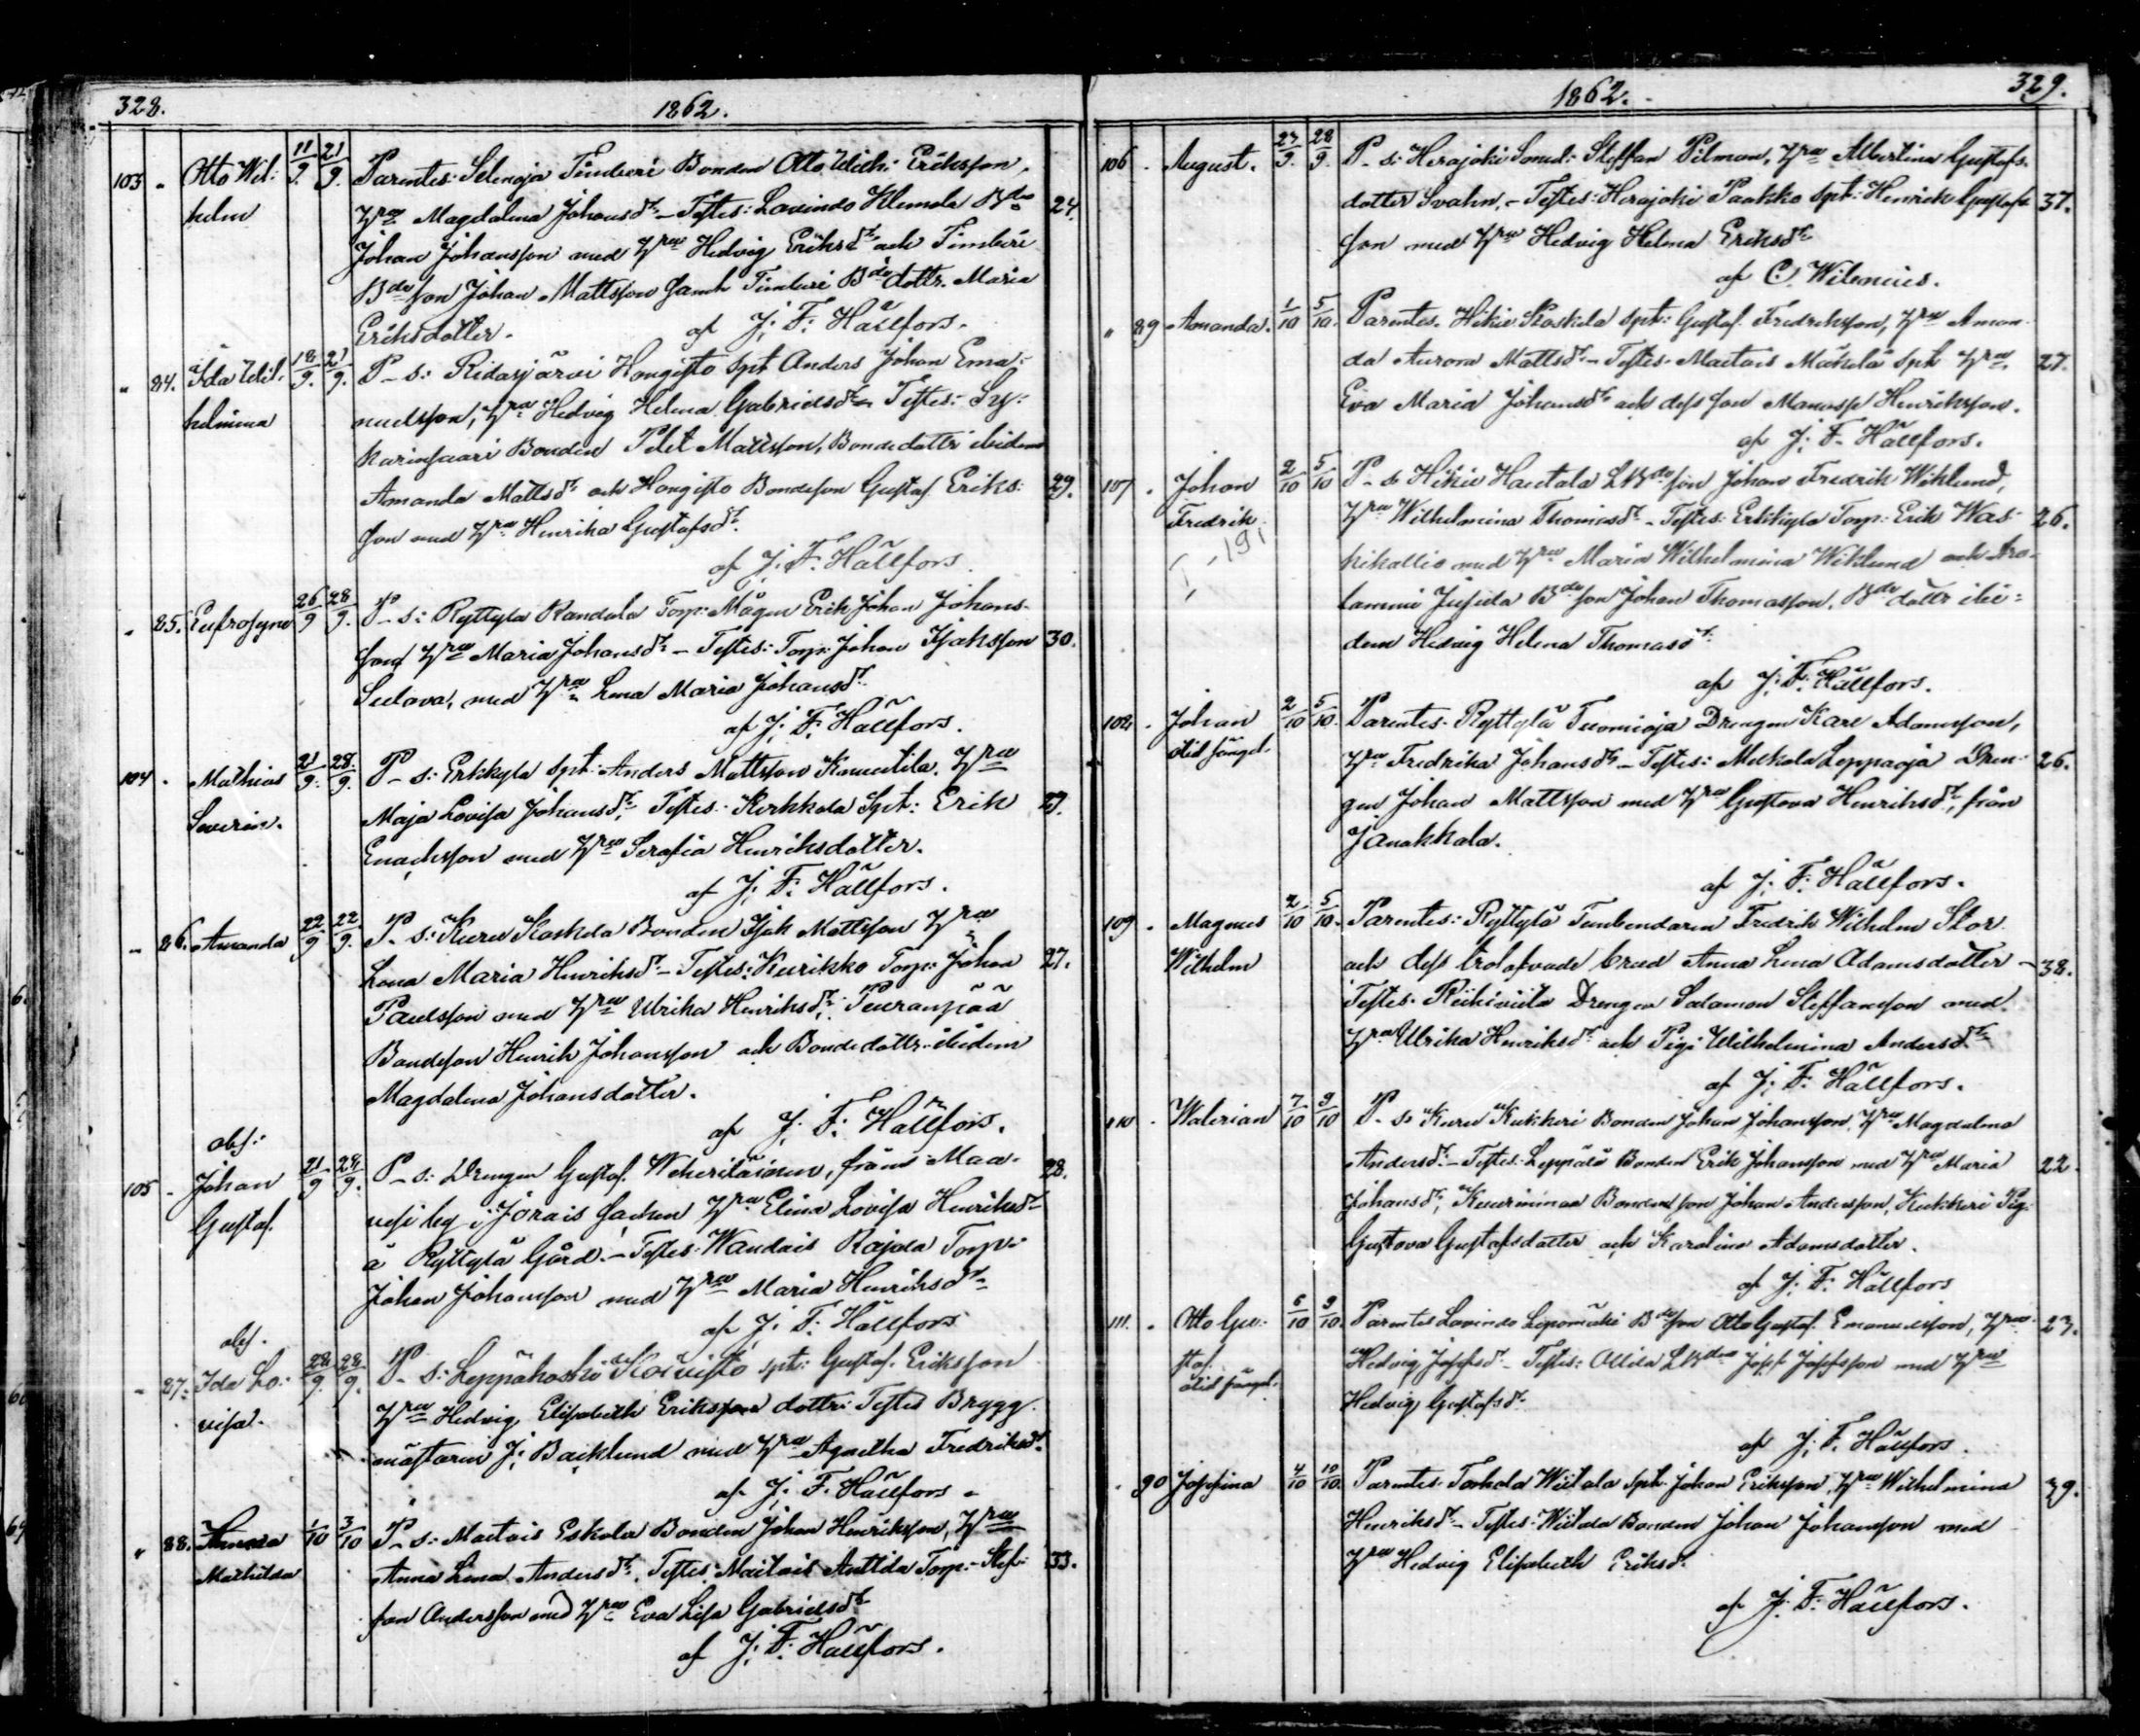 328.
1862.
103 " Otto Wil: 11/9. 21/9. Parentes: Selenoja Timberi Bonden Otto Wilh: Eriksson,
helm Hru Magdalena Johansdr. - Testes: Lavindo Klemola Bden 24.
Johan Johansson med Hru Hedvig Eriksdr och Timberi
Bdeson Johan Mattsson samt Timberi Bdedottr. Maria
Eriksdotter. af J: F: Hällfors.
" 84. Ida Wil: 18/9. 21/9. P-s: Ridasjärvi Hongisto Spt Anders Johan Ema-
helmina nuelsson, Hru Hedvig Helena Gabrielsdr - Testes: Sy-
Bonden Mattsson, Bondedottr ibidem
Amanda Mattsdr och Hongisto Bondeson Gustaf Eriks: 29.
son med Hru Henrika Gustafsdr.
af J: F: Hällfors.
" 85. Eufrosyne 26/9 28/9. P-s: Ryttylä Randala Torp: Mågen Erik Johan Johans-
son Hru Maria Johansdr - Testes: Torp: Johan Isaksson 30.
med Hru Lena Maria Johansdr
af J: F: Hällfors.
104 - Mathias 21/9. 28/9. P-s: Erkkylä Spt: Anders Mattsson Hru
Severin. Maja Lovisa Johansdr; Testes: Kerkkola Spt: Erik 29.
Enochsson med Hru Serafia Henriksdotter.
af J: F: Hällfors.
" 86. Amanda 22/9 22/9. P-s: Kuru Koskela Bonden Isak Mattsson Hru
Lena Maria Henriksdr - Testes: Kurikko Torp: Johan 27.
Paulsson med Hru Ulrika Henriksdr; Peuranpää
Bondeson Henrik Johansson och Bondedottr. ibidem
Magdalena Johansdotter.
af J: F: Hällfors.
abs:
105 - Johan 21/9 28/9. P-s: Drengen Gustaf från Maa- 28.
Gustaf. vesi by i Jorois Socken Hru Elina Lovisa Henriksdr
å Ryttylä Gård. - Testes: Wandais Rajala Torp:
Johan Johansson med Hru Maria Henriksdr
af J: F: Hällfors
abs.
" 87. Ida Lo: 28/9. 28/9. P-s: Leppäkoski Koivisto spt: Gustaf Eriksson
visa. Hru Hedvig Elisabeth Eriks dotter Testes Brygg-
mästaren J: Backlund med Hru Agatha Fredriksdr.
af J: F: Hällfors -
" 88. 1/10 3/10 P-s: Maitois Eskola Bonden Johan Henriksson, Hru
Mathilda Anna Lena Andersdr. Testes: Maitois Anttila Torp: Stef- 33.
fan Andersson med Hru Eva Lisa Gabrielsdr
af J: F: Hällfors.
1862.
329.
106 - August. 23/9. 28/9. P-s: Herajoki Steffan Pilman, Hru Albertina Gustafs-
dotter Svahn. - Testes: Herajoki Paakko Spt: Henrik Gustafs- 37.
son med Hru Hedvig Helena Eriksdr
af C. Wilenius.
" 89 Amanda. 1/10 5/10. Parentes. Hikiä Koskela Spt: Gustaf Fredriksson, Hru Aman-
da Aurora Mattsdr - Testes: Maitois Mäkelä Spt. Hru 27.
Eva Maria Johansdr och dess son Manasse Henriksson.
af J: F: Hällfors.
107 - Johan 2/10 5/10 P-s Hikiä Hautala LBdeson Johan Fredrik Wiklund,
Fredrik Hru Wilhelmina Thomasdr - Testes: Erkkylä Torp: Erik Wes- 26.
kikallio med Hru Maria Wilhelmina Wiklund och Aro-
lammi Jusula Bdeson Johan Thomasson, Bdedottr ibi-
dem Hedvig Helena Thomasdr
af J: F: Hällfors.
108 - Johan 2/10 5/10. Parentes. Ryttylä Tuomioja Drengen Karl Adamsson,
Hru Fredrika Johansdr - Testes: Leppäoja Dren- 26.
gen Johan Mattsson med Hru Gustava Henriksdr, från
Janakkala.
af J: F: Hällfors.
109 - Magnus 2/10 5/10. Parentes: Ryttylä Fredrik Wilhelm Stor
Wilhelm och dess trolofvade brud Anna Lena Adamsdotter - 38.
Testes: Drengen Salomon Steffansson med
Hru Ulrika Henriksdr och Pig: Wilhelmina Andersdr
af J: F: Hällfors.
110 - Walerian 7/10 9/10 P-s Kuru Kukkeri Bonden Johan Johansson, Hru Magdalena
Andersdr - Testes: Leppälä Bonden Erik Johansson med Hru Maria 22.
Johansdr, Bondens son Johan Andersson, Kukkeri Pig:
Gustava Gustafsdotter och Karolina Adamsdotter.
af J: F: Hällfors
111. - Otto Gu- 6/10 9/10. Parentes Lavindo Bdeson Otto Gustaf Emanuelsson, Hru 23.
staf. Hedvig Josefsdr - Testes: Ollila LBden Josef Josefsson med Hru
Hedvig Gustafsdr
af J: F: Hällfors.
" 90 Josefina 4/10 10/10. Parentes. Torhola Wiitala Spt. Johan Eriksson, Hru Wilhelmina 39.
Henriksdr - Testes: Wiitala Bonden Johan Johansson med
Hru Hedvig Elisabeth Eriksdr.
af J: F: Hällfors.